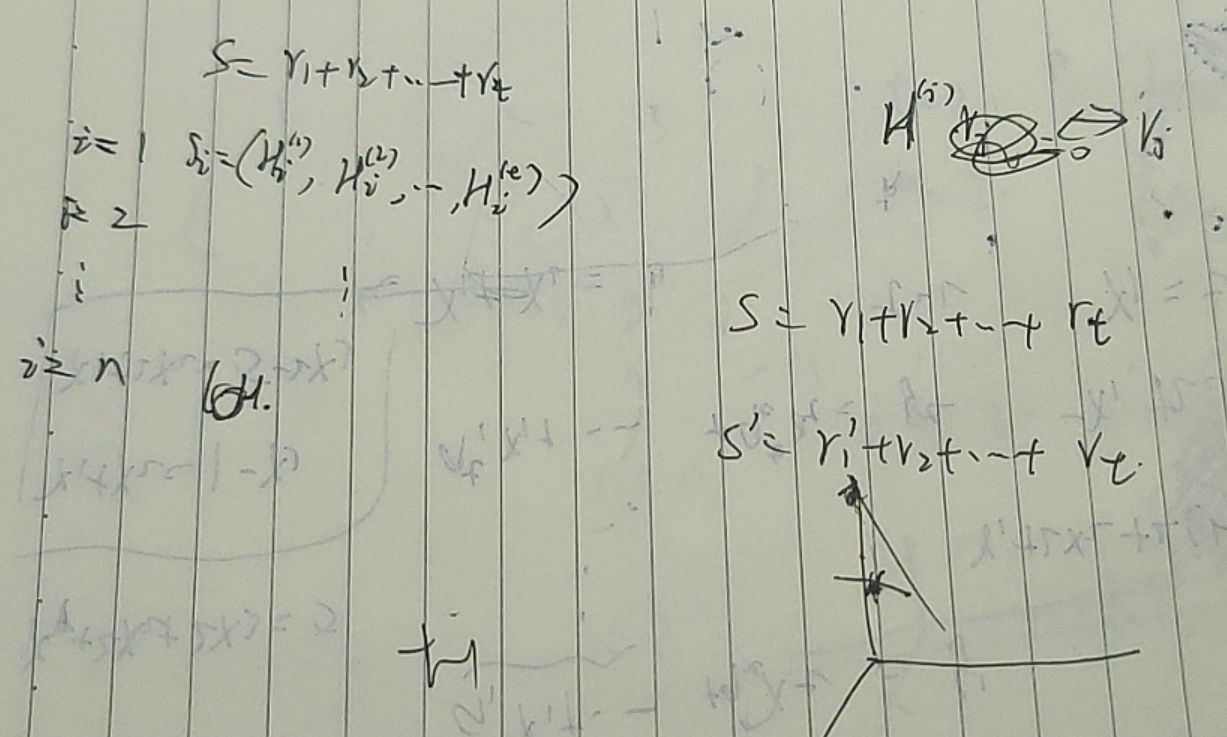 S = r₁ + r₂ + ... + r_t
i = 1 S_i = (H_i^{(1)}, H_i^{(2)}, ..., H_i^{(e)})
i = 2
⋮ ⋮
i = n
H^{(j)} ↔ r_j
S = r₁ + r₂ + ... + r_t
S' = r₁' + r₂ + ... + r_t.